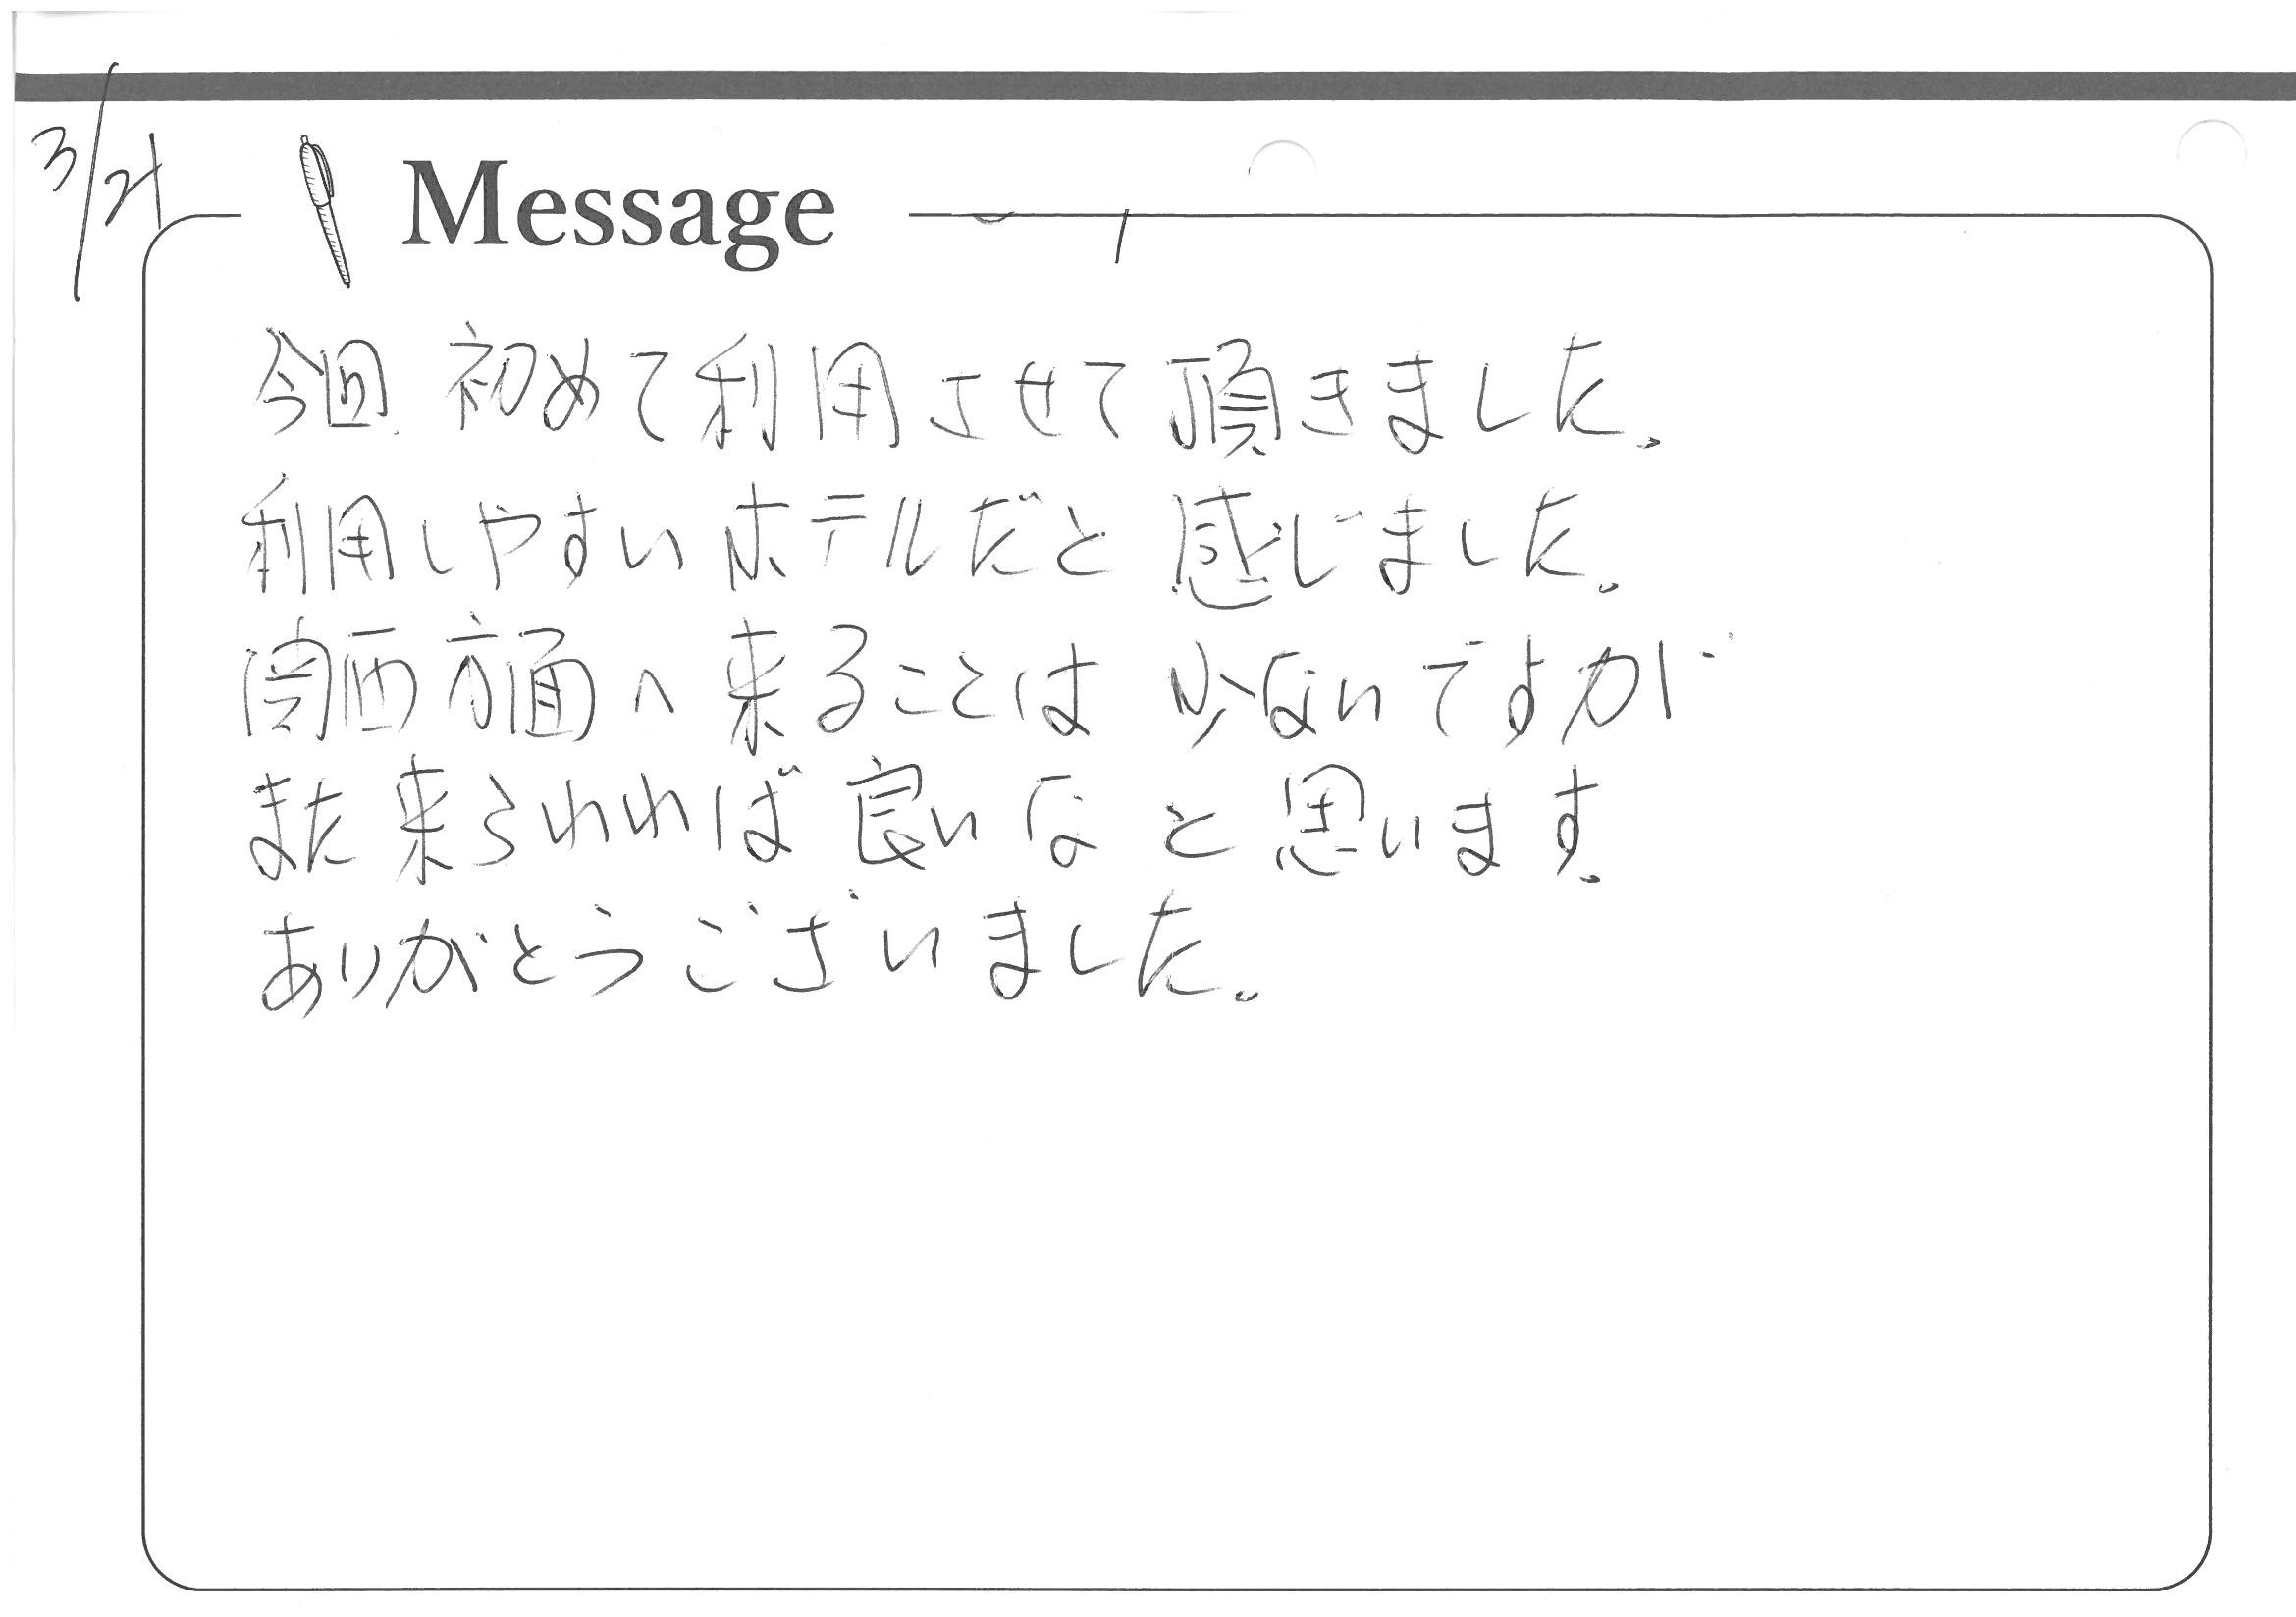 3/21
Message
今回、初めて利用させて頂きました。
利用しやすいホテルだと感じました。
関西方面へ来ることは少ないですが
また来られれば良いなと思います。
ありがとうございました。